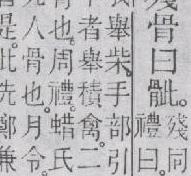 殘骨曰骴。
殘同
禮曰
舉柴。手部引
者舉積禽。二
也。周禮。蜡氏
人骨也。月令。
是。此先鄭兼